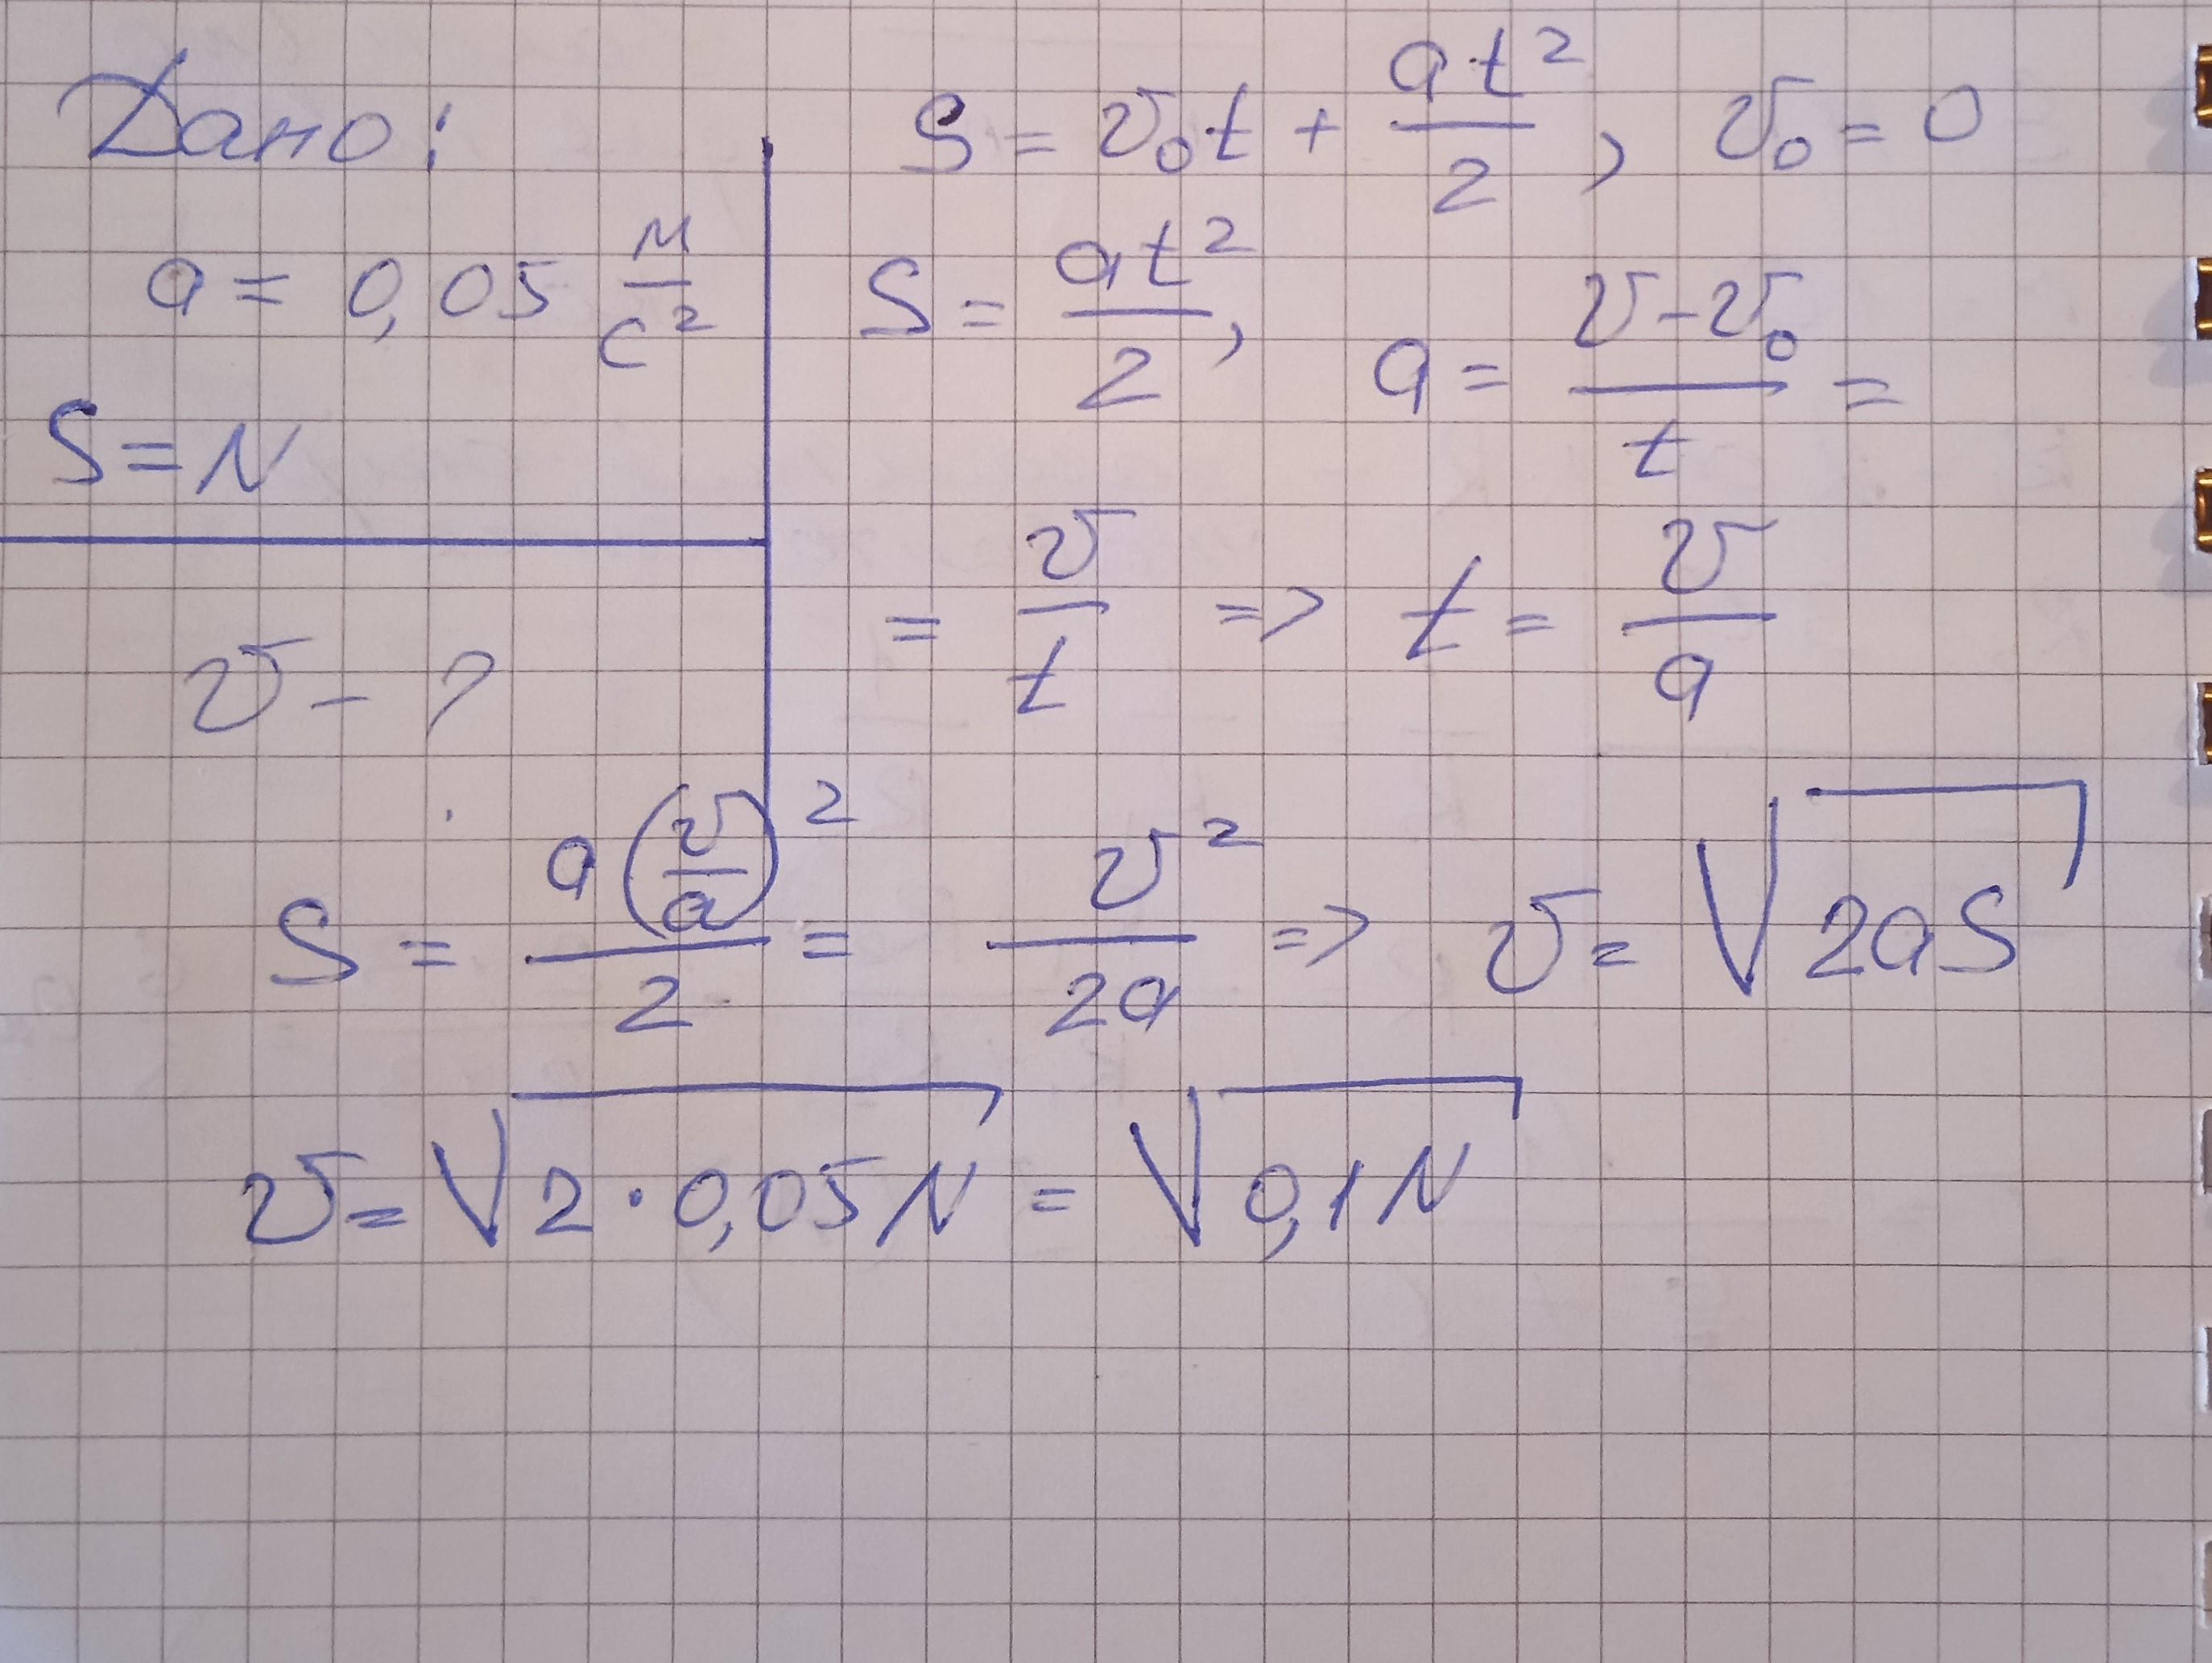 Дано:
a = 0,05 м/с²
S = N
v - ?
S = v₀t + at²/2, v₀ = 0
S = at²/2, a = (v - v₀)/t =
= v/t => t = v/a
S = a(v/a)²/2 = v²/2a => v = √(2aS)
v = √(2 · 0,05N) = √(0,1N)